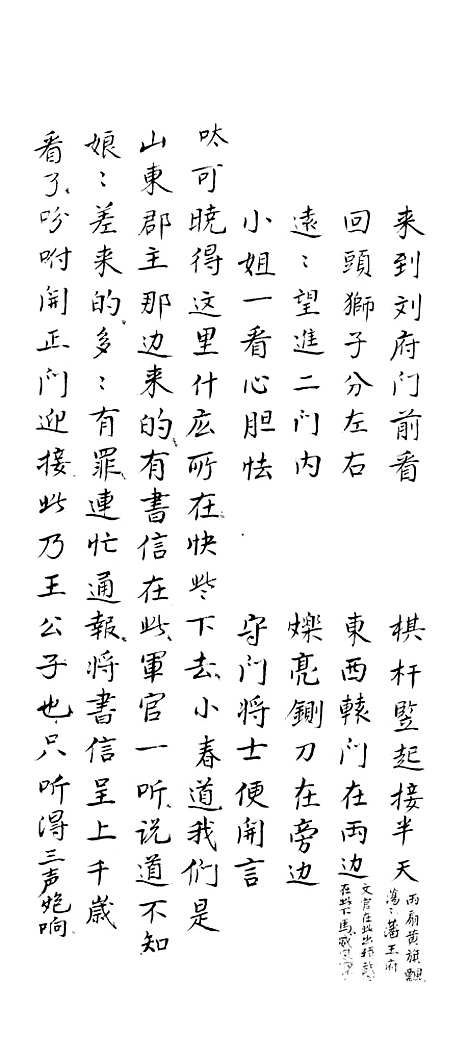 来到刘府门前看　棋杆竖起接半天　两扇黄旗飘
荡〻藩王府
回頭獅子分左右　東西轅门在両边　文官在此出轿
在此下馬
遠〻望進二门内　爍亮鍘刀在旁边
小姐一看心胆怯　守门将士便開言
呔可曉得这里什庅所在快些下去小春道我们是
山東郡主那边来的有書信在此軍官一听说道不知
娘〻差来的多〻有罪連忙通報将書信呈上千歲
看了吩咐開正门迎接此乃王公子也只听得三声炮响